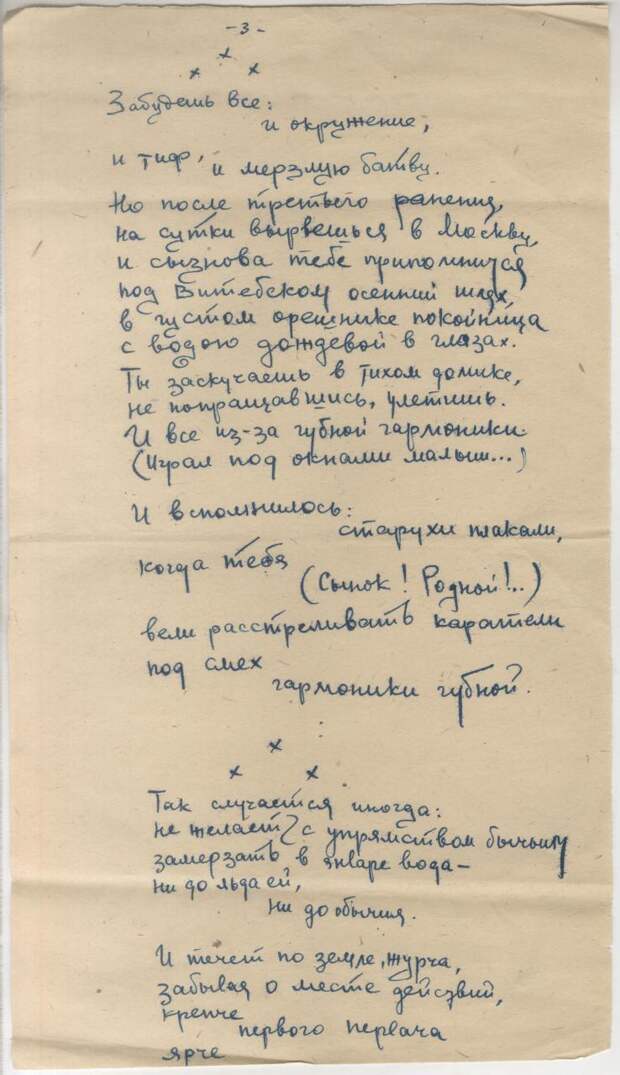 -3-
х
х х
Забудешь все:
и окружение,
и тиф, и мерзлую ботву.
Но после третьего ранения,
на сутки вырвешься в Москву,
и сызнова тебе припомнится
под Витебском осенний шлях,
в густом орешнике покойница
с водою дождевой в глазах.
Ты заскучаешь в тихом домике,
не попращавшись, улетишь.
И все из-за губной гармоники.
(Играл под окнами малыш...)
И вспомнилось:
старухи плакали,
когда тебя
(Сынок! Родной!..)
вели расстреливать каратели
под смех
гармоники губной.
х
х х
Так случается иногда:
не желает с упрямством бычьим
замерзать в январе вода –
ни до льда ей,
ни до обычия.
И течет по земле, журча,
забывая о месте действий,
крепче
первого первача
ярче